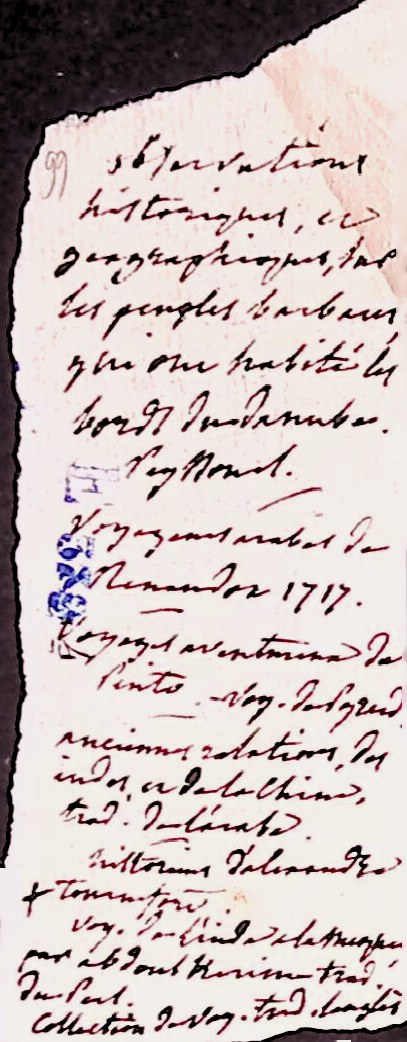 99
observations
historiques, et
geographiques, sur
les peuples barbares,
qui ont habité les
bords du danube.
Peyssonel.
Voyageurs arabes de
Renaudon 1717.
Voyages aventureux de
Pinto - Voy. de Pyrard
anciennes relations, des
indes, et de la Chine,
trad. de l'arabe.
historiens d'alexandre
+ Tournefort.
Voy. de l'inde a la Mecque
par abdoul Kerime trad.
du Pers.
Collection de Voy. trad. langlès